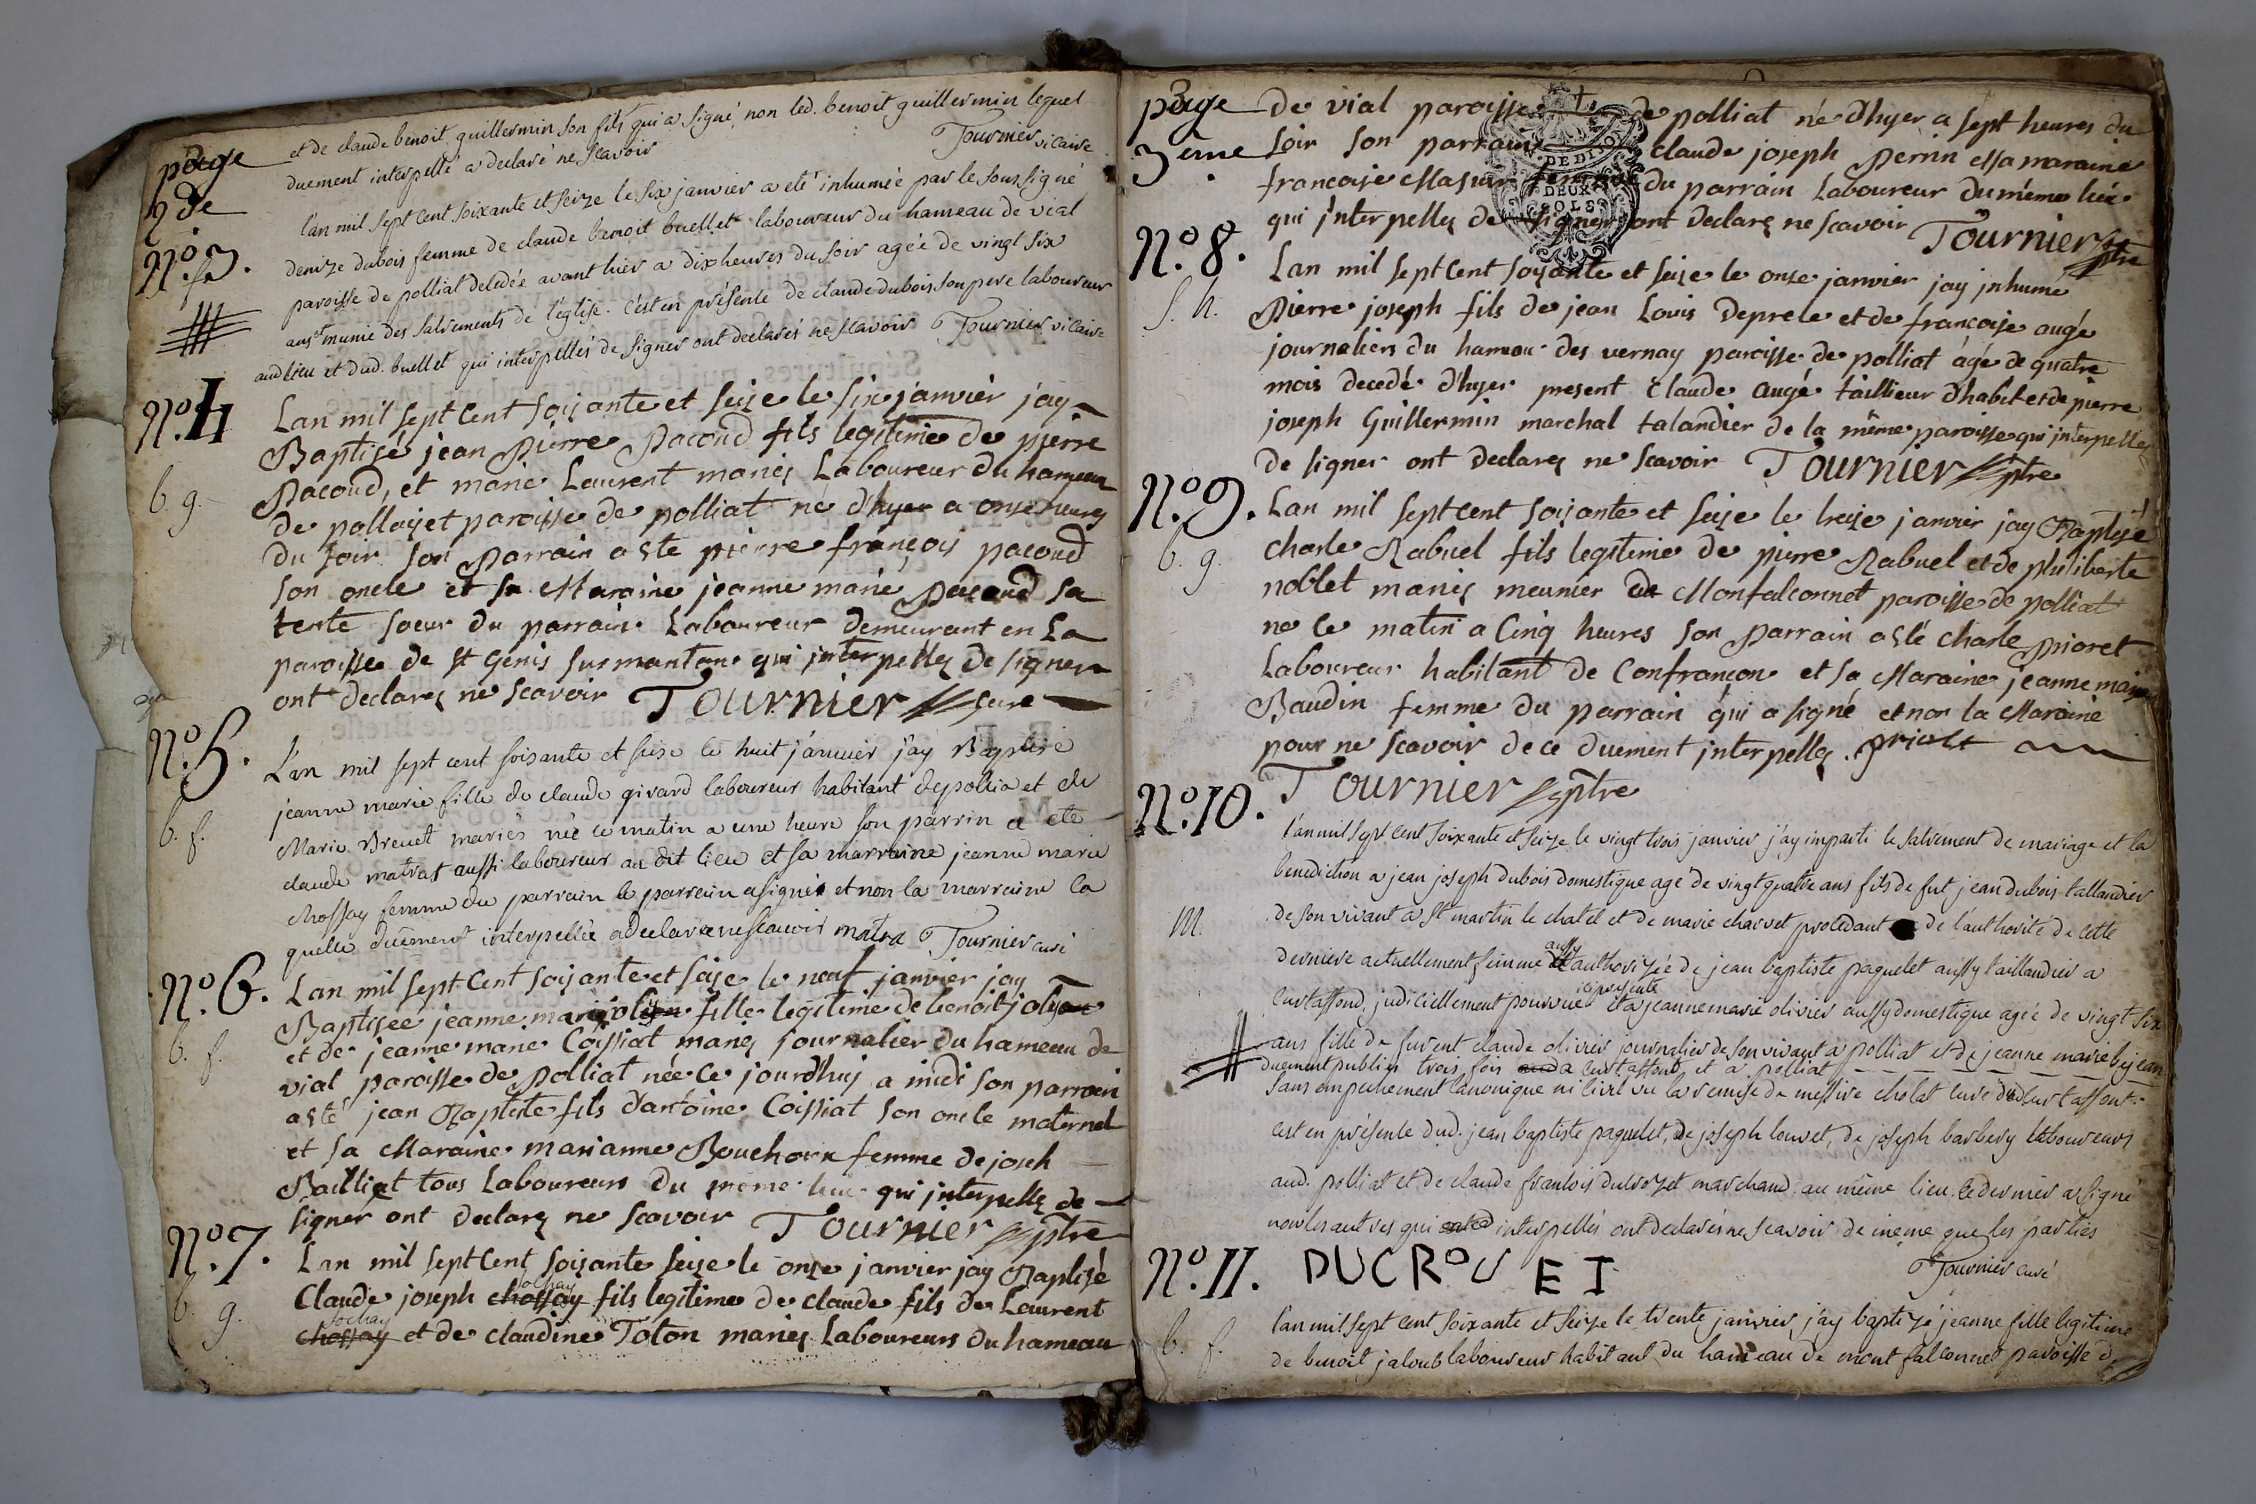 page
2de
et de claude benoit guillermin son fils qui a signé, non led. benoit guillermin lequel
duement interpellé a declaré ne scavoir Tournier vicaire
N.º 3.
l'an mil sept cent soixante et seize le six janvier a eté inhumée par le soussigné
denize dubois femme de claude benoit buellet laboureur du hameau de vial
paroisse de polliat decedée avant hier a dix heures du soir agée de vingt six
ans munie des sacrements de l'église. c'est en présence de claude dubois son pere laboureur
aud lieu et dud. buellet qui interpellés de signer ont declarés ne scavoir Tournier vicaire
N.º 4
b. g.
Lan mil sept cent soixante et seize le six janvier jay
Baptisé jean Pierre Pacoud fils legitime de pierre
Pacoud, et marie Laurent mariés Laboureur du hameau
de pollaiset paroisse de polliat né d'hyer a onze heures
du soir son Parrain a été pierre françois pacoud
son oncle et sa Maraine jeanne marie Pacoud sa
tente soeur du parrain Laboureur demeurant en La
paroisse de st genis surmanton qui interpellés de signer
ont declarés ne scavoir Tournier curé
N.º 5.
b. f.
L'an mil sept cent soixante et seise le huit janvier j'ay Baptisé
jeanne marie fille de claude girard laboureur habitant de pollia et de
Marie Brevet mariés née ce matin a une heure son parrin a eté
claude matrat aussi laboureur au dit lieu et sa marraine jeanne marie
chossay femme du parrain le parrain a signé et non la marraine la
quelle duement interpellée a declaré ne scavoir matra Tournier curé
N.º 6.
b. f.
Lan mil sept Cent soixante et seise le neuf janvier jay
Baptisée jeanne marie jolijon fille legitime de benoit jolijon
et de jeanne marie Coissiat mariés journalier du hameau de
vial paroisse de Polliat née ce jourdhuj a midi son parrain
a été jean Baptiste fils d'antoine Coissiat son oncle maternel
et sa Maraine marianne Bouchorn femme de joseh
Bailliat tous Laboureurs du meme lieu qui interpellés de
signer ont declarés ne scavoir Tournier ptre
N.º 7.
b. g.
Lan mil sept Cent soixante seize le onze janvier jay Baptisé
Claude joseph chossay sochay fils legitime de claude fils de Laurent
chossay sochay et de claudine Toton mariés Laboureurs du hameau
page
3eme
de vial paroisse de polliat né d'hyer a sept heures du
soir son parrain claude joseph Perrin et sa maraine
francoise Masuir femme du parrain Laboureur du même lieu
qui interpellés de signer ont declarés ne scavoir Tournier ptre
DE DIJON
DEUX
SOLS
N.º 8.
s. h.
Lan mil sept Cent soixante et seize le onze janvier jay jnhumé
Pierre joseph fils de jean Louis Deprele et de francoise augé
journaliers du hameau des vernay paroisse de polliat âgé de quatre
mois decedé d'hyer present Claude augé taillieur d'habit et de pierre
joseph Guillermin marchal talandier de la même paroisse qui interpellés
de signer ont declarés ne scavoir Tournier ptre
N.º 9.
b. g.
Lan mil sept cent soixante et seise le treize janvier jay Baptisé
charle Rabuel fils legitime de pierre Rabuel et de philiberte
noblet mariés meunier de Monfalconnet paroisse de polliat
né ce matin a Cinq heures son Parrain a été charle Prioret
Laboureur habitant de Confrançon et sa Maraine jeanne marie
Baudin femme du parrain qui a signé et non la Maraine
pour ne scavoir de ce duement interpellés.
Tournier ptre
N.º 10.
m.
l'an mil sept cent soixante et seize le vingt trois janvier j'ay imparti le sacrement de mariage et la
benediction a jean joseph dubois domestique agé de vingt quatre ans fils de fut jean dubois tallandier
de son vivant a st martin le chatel et de marie charvet procedant de l'authorité de cette
derniere actuellement femme aussy authorizée de jean baptiste paguelet aussy taillandier a
curtaffond, judiciellement pourvue icy presente et a jeanne marie olivier aussy domestique agée de vingt six
ans fille de furent claude olivier journalier de son vivant a polliat et de jeanne marie byjean
duement publiés trois fois a curtaffond et a polliat
sans empechement canonique ni civil vu la remise de messire cholat curé dud curtaffont
c'est en présence dud. jean baptiste paguelet, de joseph louvet, de joseph barbery laboureurs
aud. polliat et de claude francois ducrozet marchand au même lieu. Le dernier a signé
non les autres qui interpellés ont declarés ne scavoir de meme que les parties
DUCROU E T Tournier curé
N.º 11.
b. f.
l'an mil sept cent soixante et seize le trente janvier, j'ay baptizé jeanne fille legitime
de benoit jaloub laboureur habitant du hameau de montfalconnet paroisse d